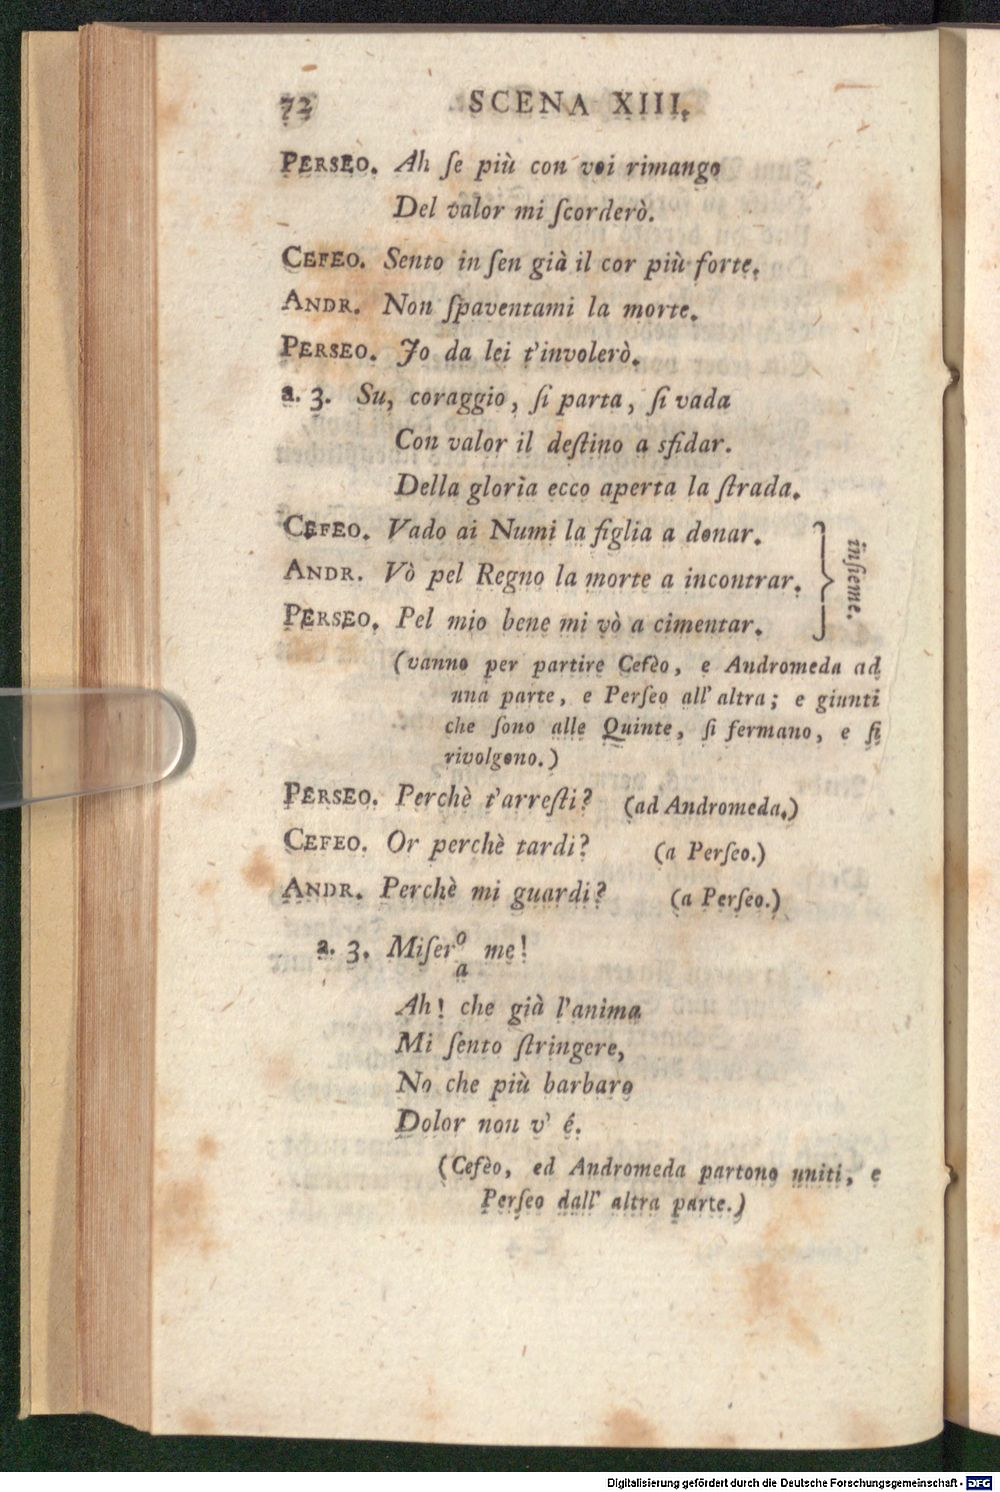 72 SCENA XIII.
PERSEO. Ah ſe più con voi rimango
Del valor mi ſcorderò.
CEFEO. Sento in ſen già il cor più forte.
ANDR. Non ſpaventami la morte.
PERSEO. Jo da lei t'involerò.
a. 3. Su, coraggio, ſi parta, ſi vada
Con valor il deſtino a sfidar.
Della gloria ecco aperta la ſtrada.
CEFEO. Vado ai Numi la figlia a donar.
ANDR. Vò pel Regno la morte a incontrar.
PERSEO. Pel mio bene mi vò a cimentar.
inſieme.
(vanno per partire Cefèo, e Andromeda ad
una parte, e Perſeo all' altra; e giunti
che ſono alle Quinte, ſi fermano, e ſi
rivolgono.)
PERSEO. Perchè t'arreſti? (ad Andromeda.)
CEFEO. Or perchè tardi? (a Perſeo.)
ANDR. Perchè mi guardi? (a Perſeo.)
a. 3. Miſer o me!
a
Ah! che già l'anima
Mi ſento ſtringere,
No che più barbaro
Dolor non v' é.
(Cefèo, ed Andromeda partono uniti, e
Perſeo dall' altra parte.)
Digitalisierung gefördert durch die Deutsche Forschungsgemeinschaft - DFG